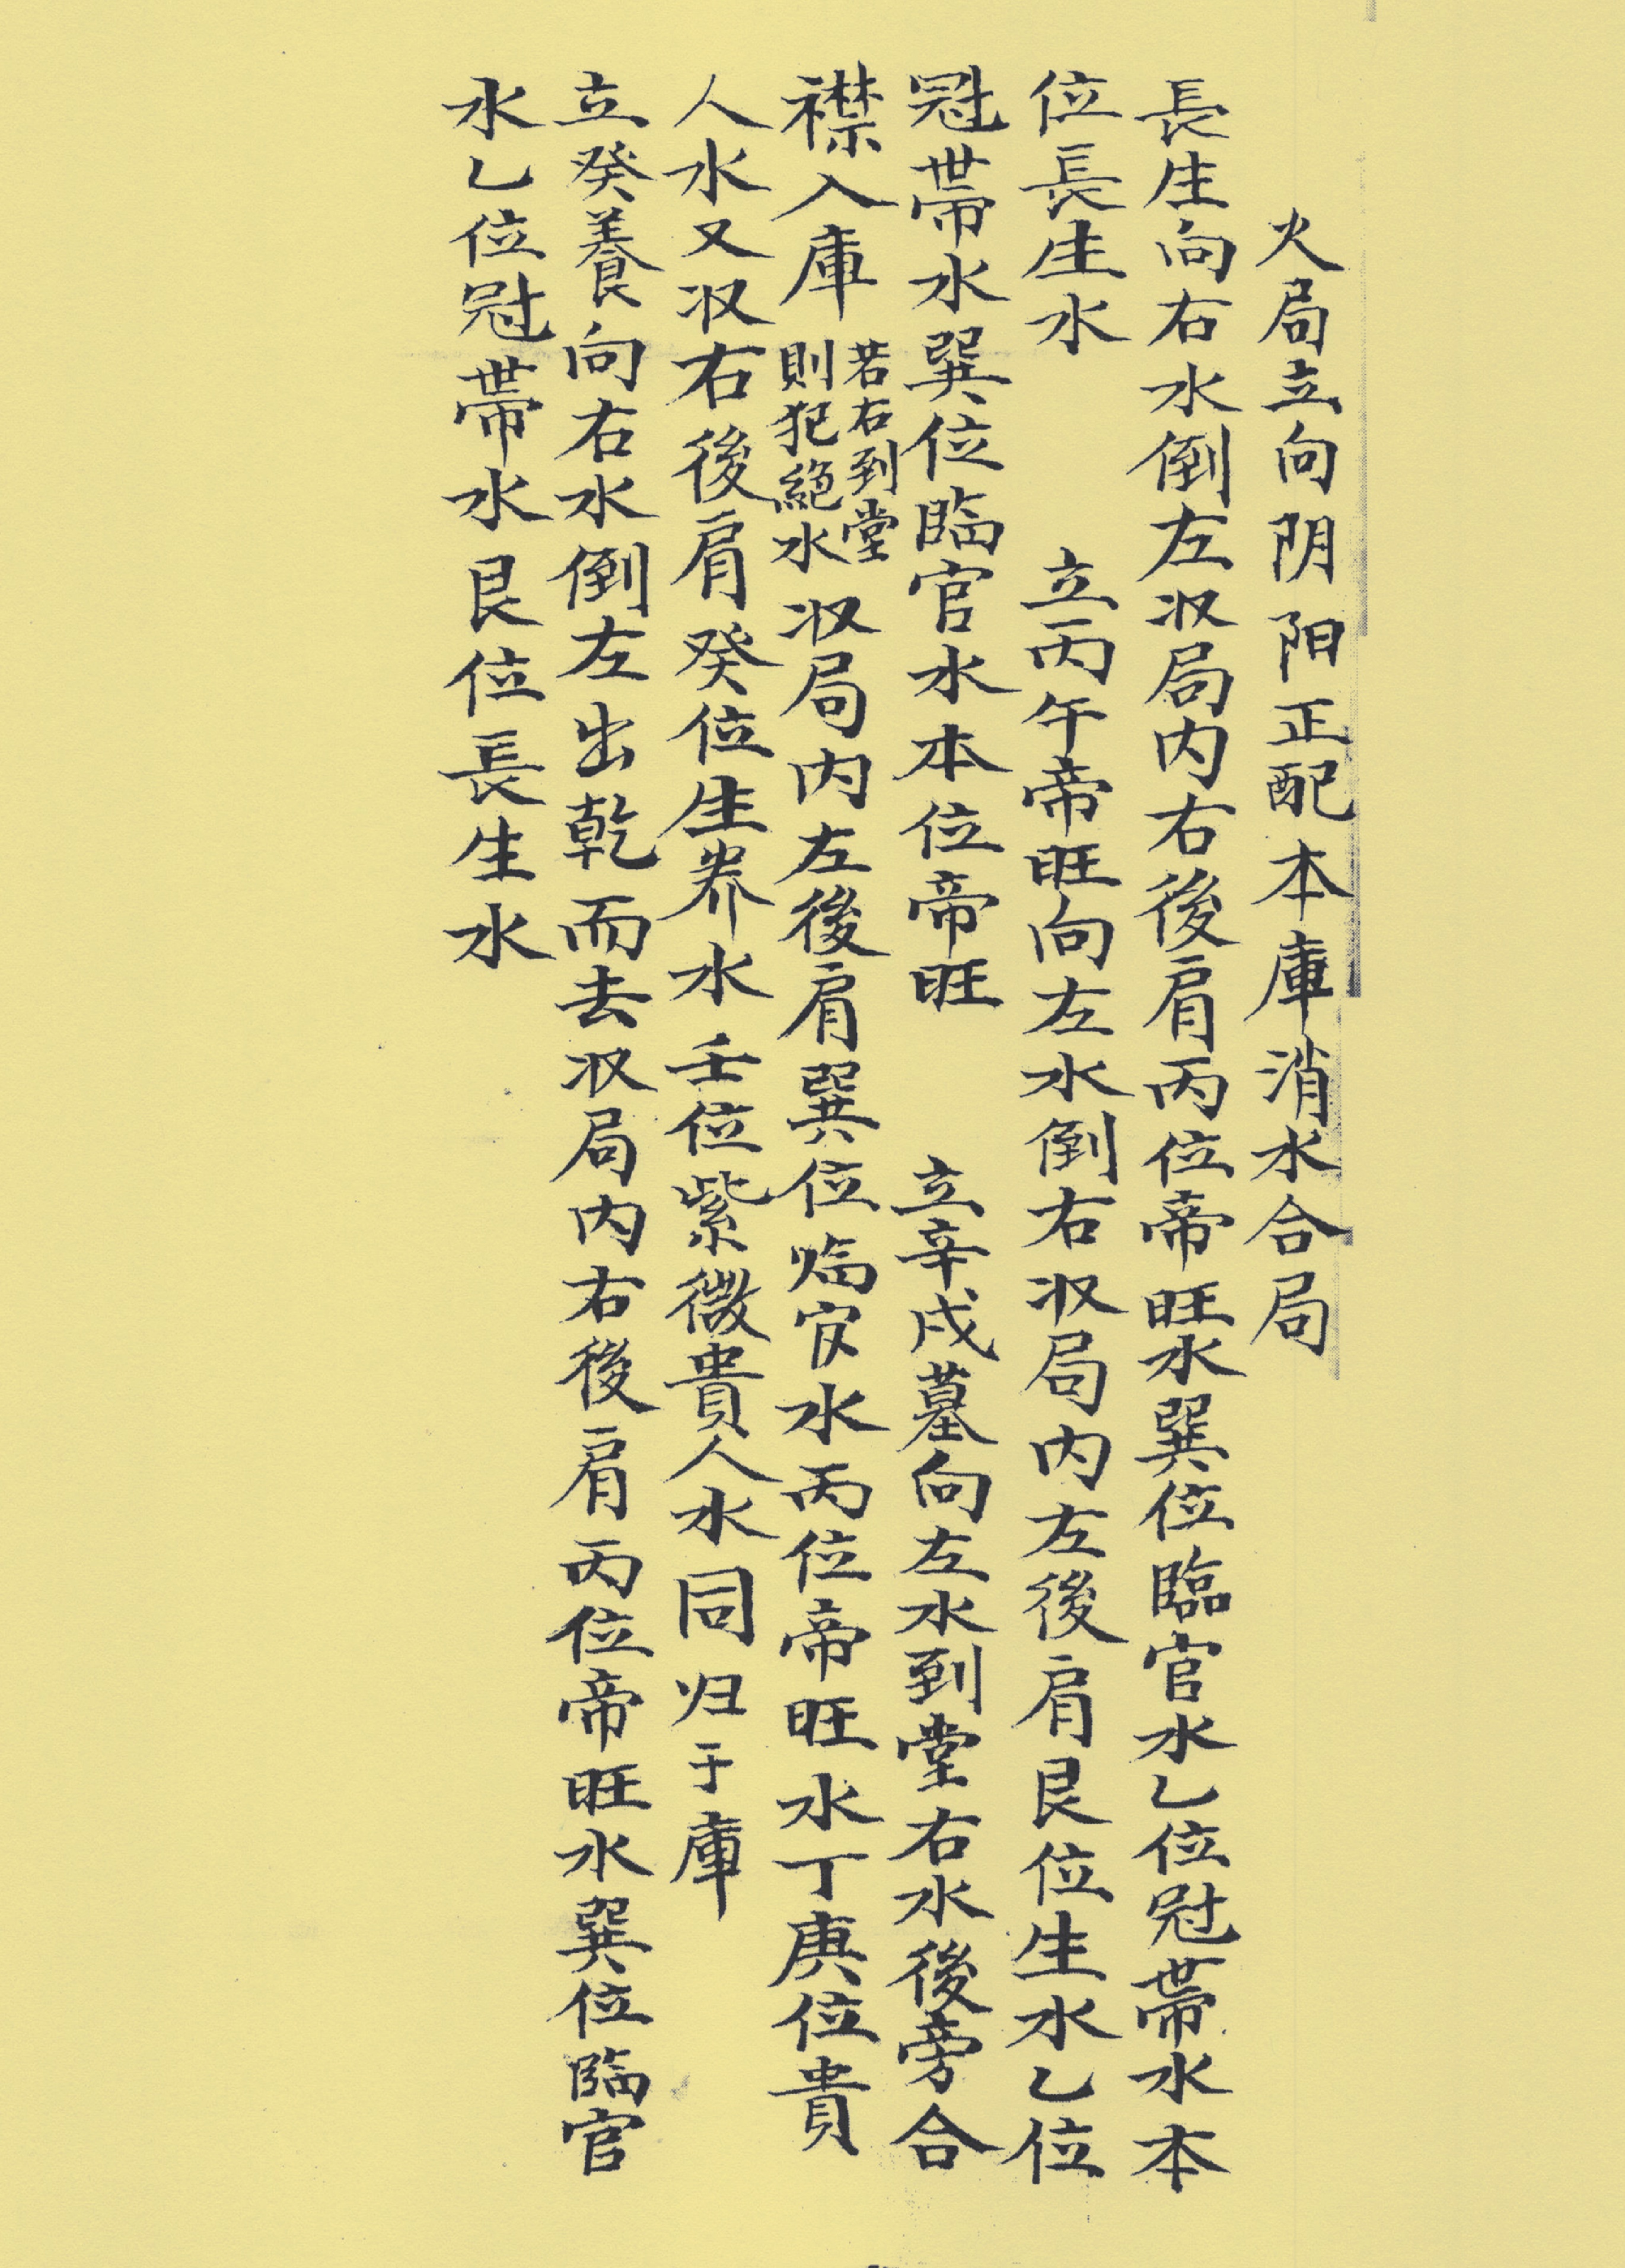 火局立向阴阳正配本庫消水合局
長生向右水倒左収局内右後肩丙位帝旺水巽位臨官水乙位冠帶水本
位長生水　立丙午帝旺向左水倒右収局内左後肩艮位生水乙位
冠帶水巽位臨官水本位帝旺　立辛戌墓向左水到堂右水後旁合
襟入庫
若右到堂
則犯絕水
収局内左後肩巽位临官水丙位帝旺水丁庚位貴
人水又収右後肩癸位生养水壬位紫微貴人水同归于庫
立癸養向右水倒左出乾而去収局内右後肩丙位帝旺水巽位臨官
水乙位冠帶水艮位長生水